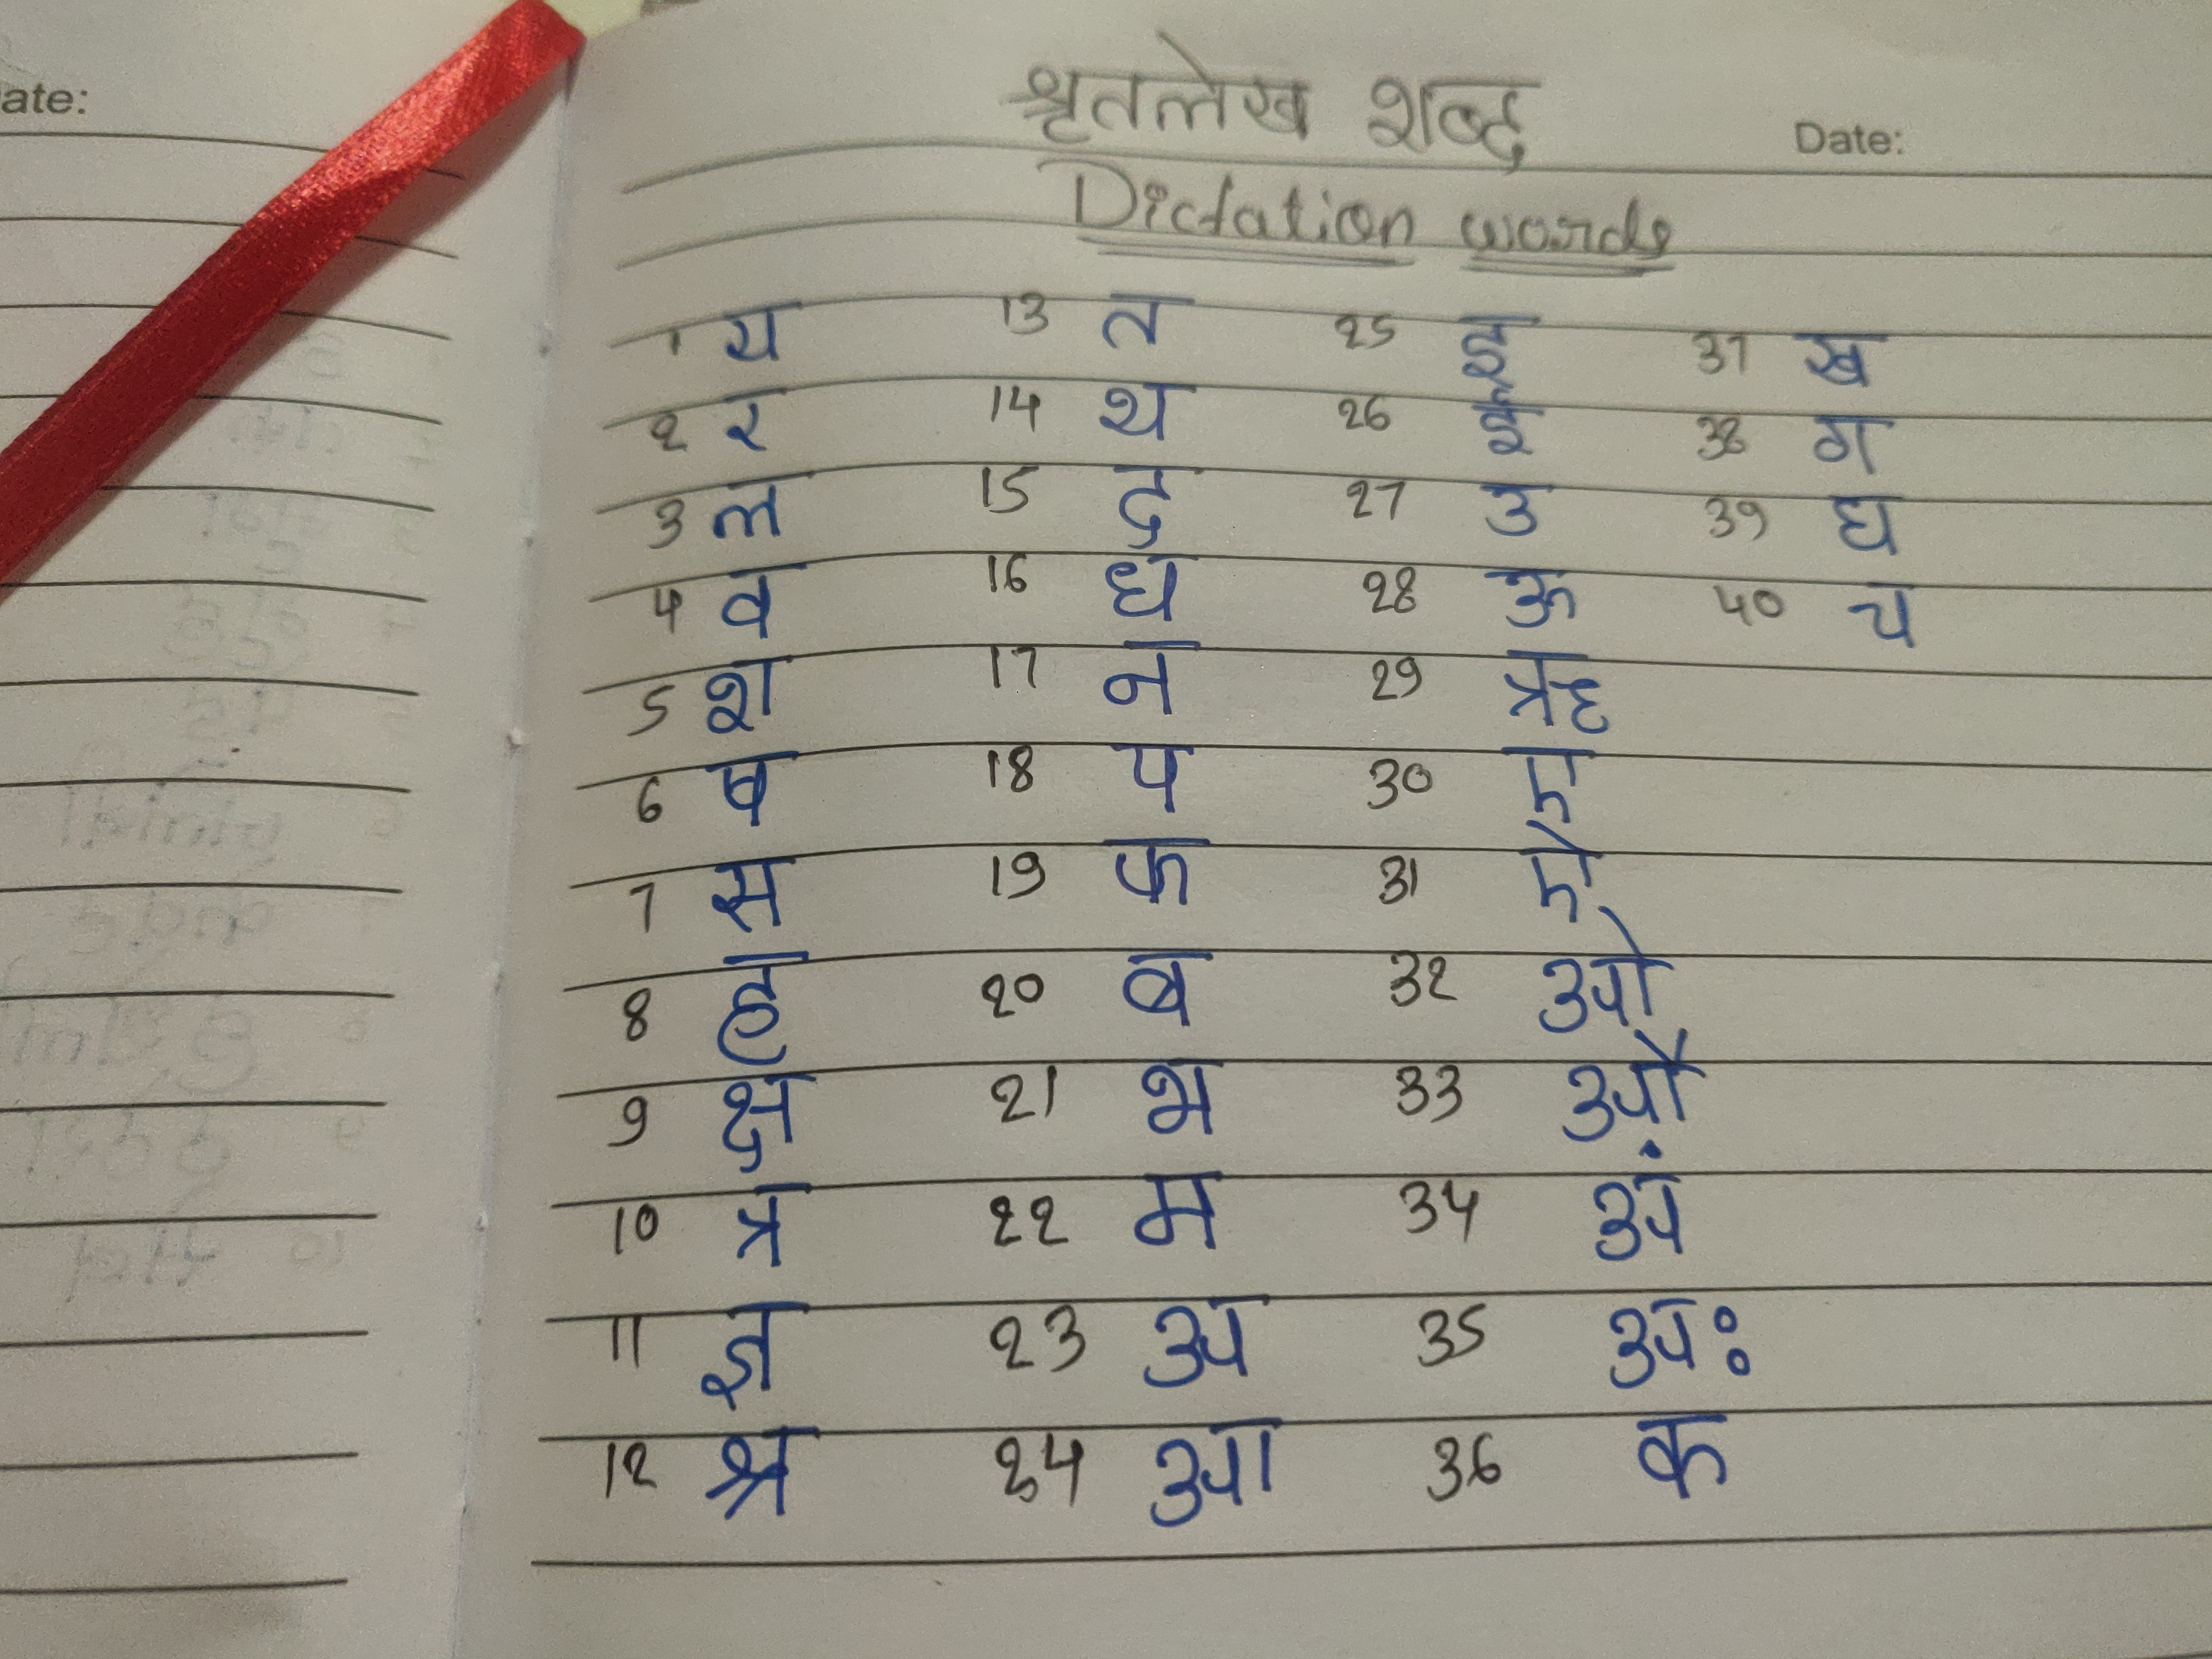 ate:
श्रृतलेख शब्द
Date:
Dictation words
1 य 13 त 25 इ 37 ख
2 र 14 थ 26 ई 38 ग
3 ल 15 द 27 उ 39 घ
4 व 16 ध 28 ऊ 40 च
5 श 17 न 29 ऋ
6 ष 18 प 30 ए
7 स 19 फ 31 ऐ
8 ह 20 ब 32 ओ
9 क्ष 21 भ 33 औ
10 त्र 22 म 34 अं
11 ज्ञ 23 अ 35 अः
12 श्र 24 आ 36 क